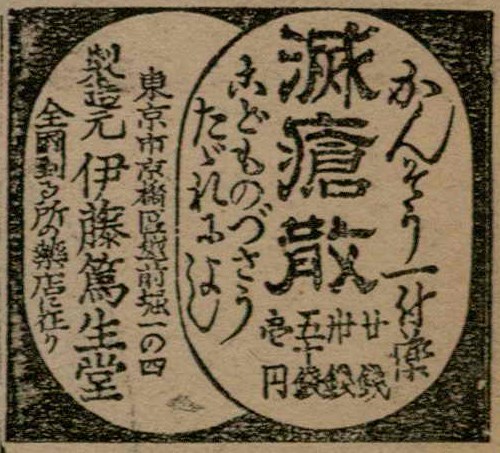 かんそう一付薬
滅瘡散
廿銭
卅銭
五十銭
壱円
こどものづさう
たゞれによし
東京市京橋區越前堀一の四
製造元 伊藤篤生堂
全國到る所の薬店に在り